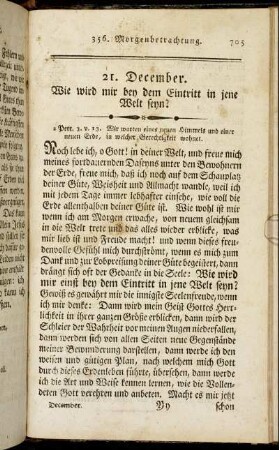 356. Morgenbetrachtung. 705
21. December.
Wie wird mir bey dem Eintritt in jene
Welt seyn?
2 Petr. 3. v. 13. Wir warten eines neuen Himmels und einer
neuen Erde, in welcher Gerechtigkeit wohnet.
Noch lebe ich, o Gott! in deiner Welt, und freue mich
meines fortdauernden Daseyns unter den Bewohnern
der Erde, freue mich, daß ich noch auf dem Schauplatz
deiner Güte, Weisheit und Allmacht wandle, weil ich
mit jedem Tage immer lebhafter einsehe, wie voll die
Erde allenthalben deiner Güte ist. Wie wohl ist mir
wenn ich am Morgen erwache, von neuem gleichsam
in die Welt trete und das alles wieder erblicke, was
mir lieb ist und Freude macht! und wenn dieses freu-
denvolle Gefühl mich durchströmt, wenn es mich zum
Dank und zur Lobpreisung deiner Güte begeistert, dann
drängt sich oft der Gedanke in die Seele: Wie wird
mir einst bey dem Eintritt in jene Welt seyn?
Gewiß es gewährt mir die innigste Seelenfreude, wenn
ich mir denke: Dann wird mein Geist Gottes Herr-
lichkeit in ihrer ganzen Größe erblicken, dann wird der
Schleier der Wahrheit vor meinen Augen niederfallen,
dann werden sich von allen Seiten neue Gegenstände
meiner Bewunderung darstellen, dann werde ich den
weisen und gütigen Plan, nach welchem mich Gott
durch dieses Erdenleben führte, übersehen, dann werde
ich die Art und Weise kennen lernen, wie die Vollen-
deten Gott verehren und anbeten. Macht es mir jetzt
December. Yy schon